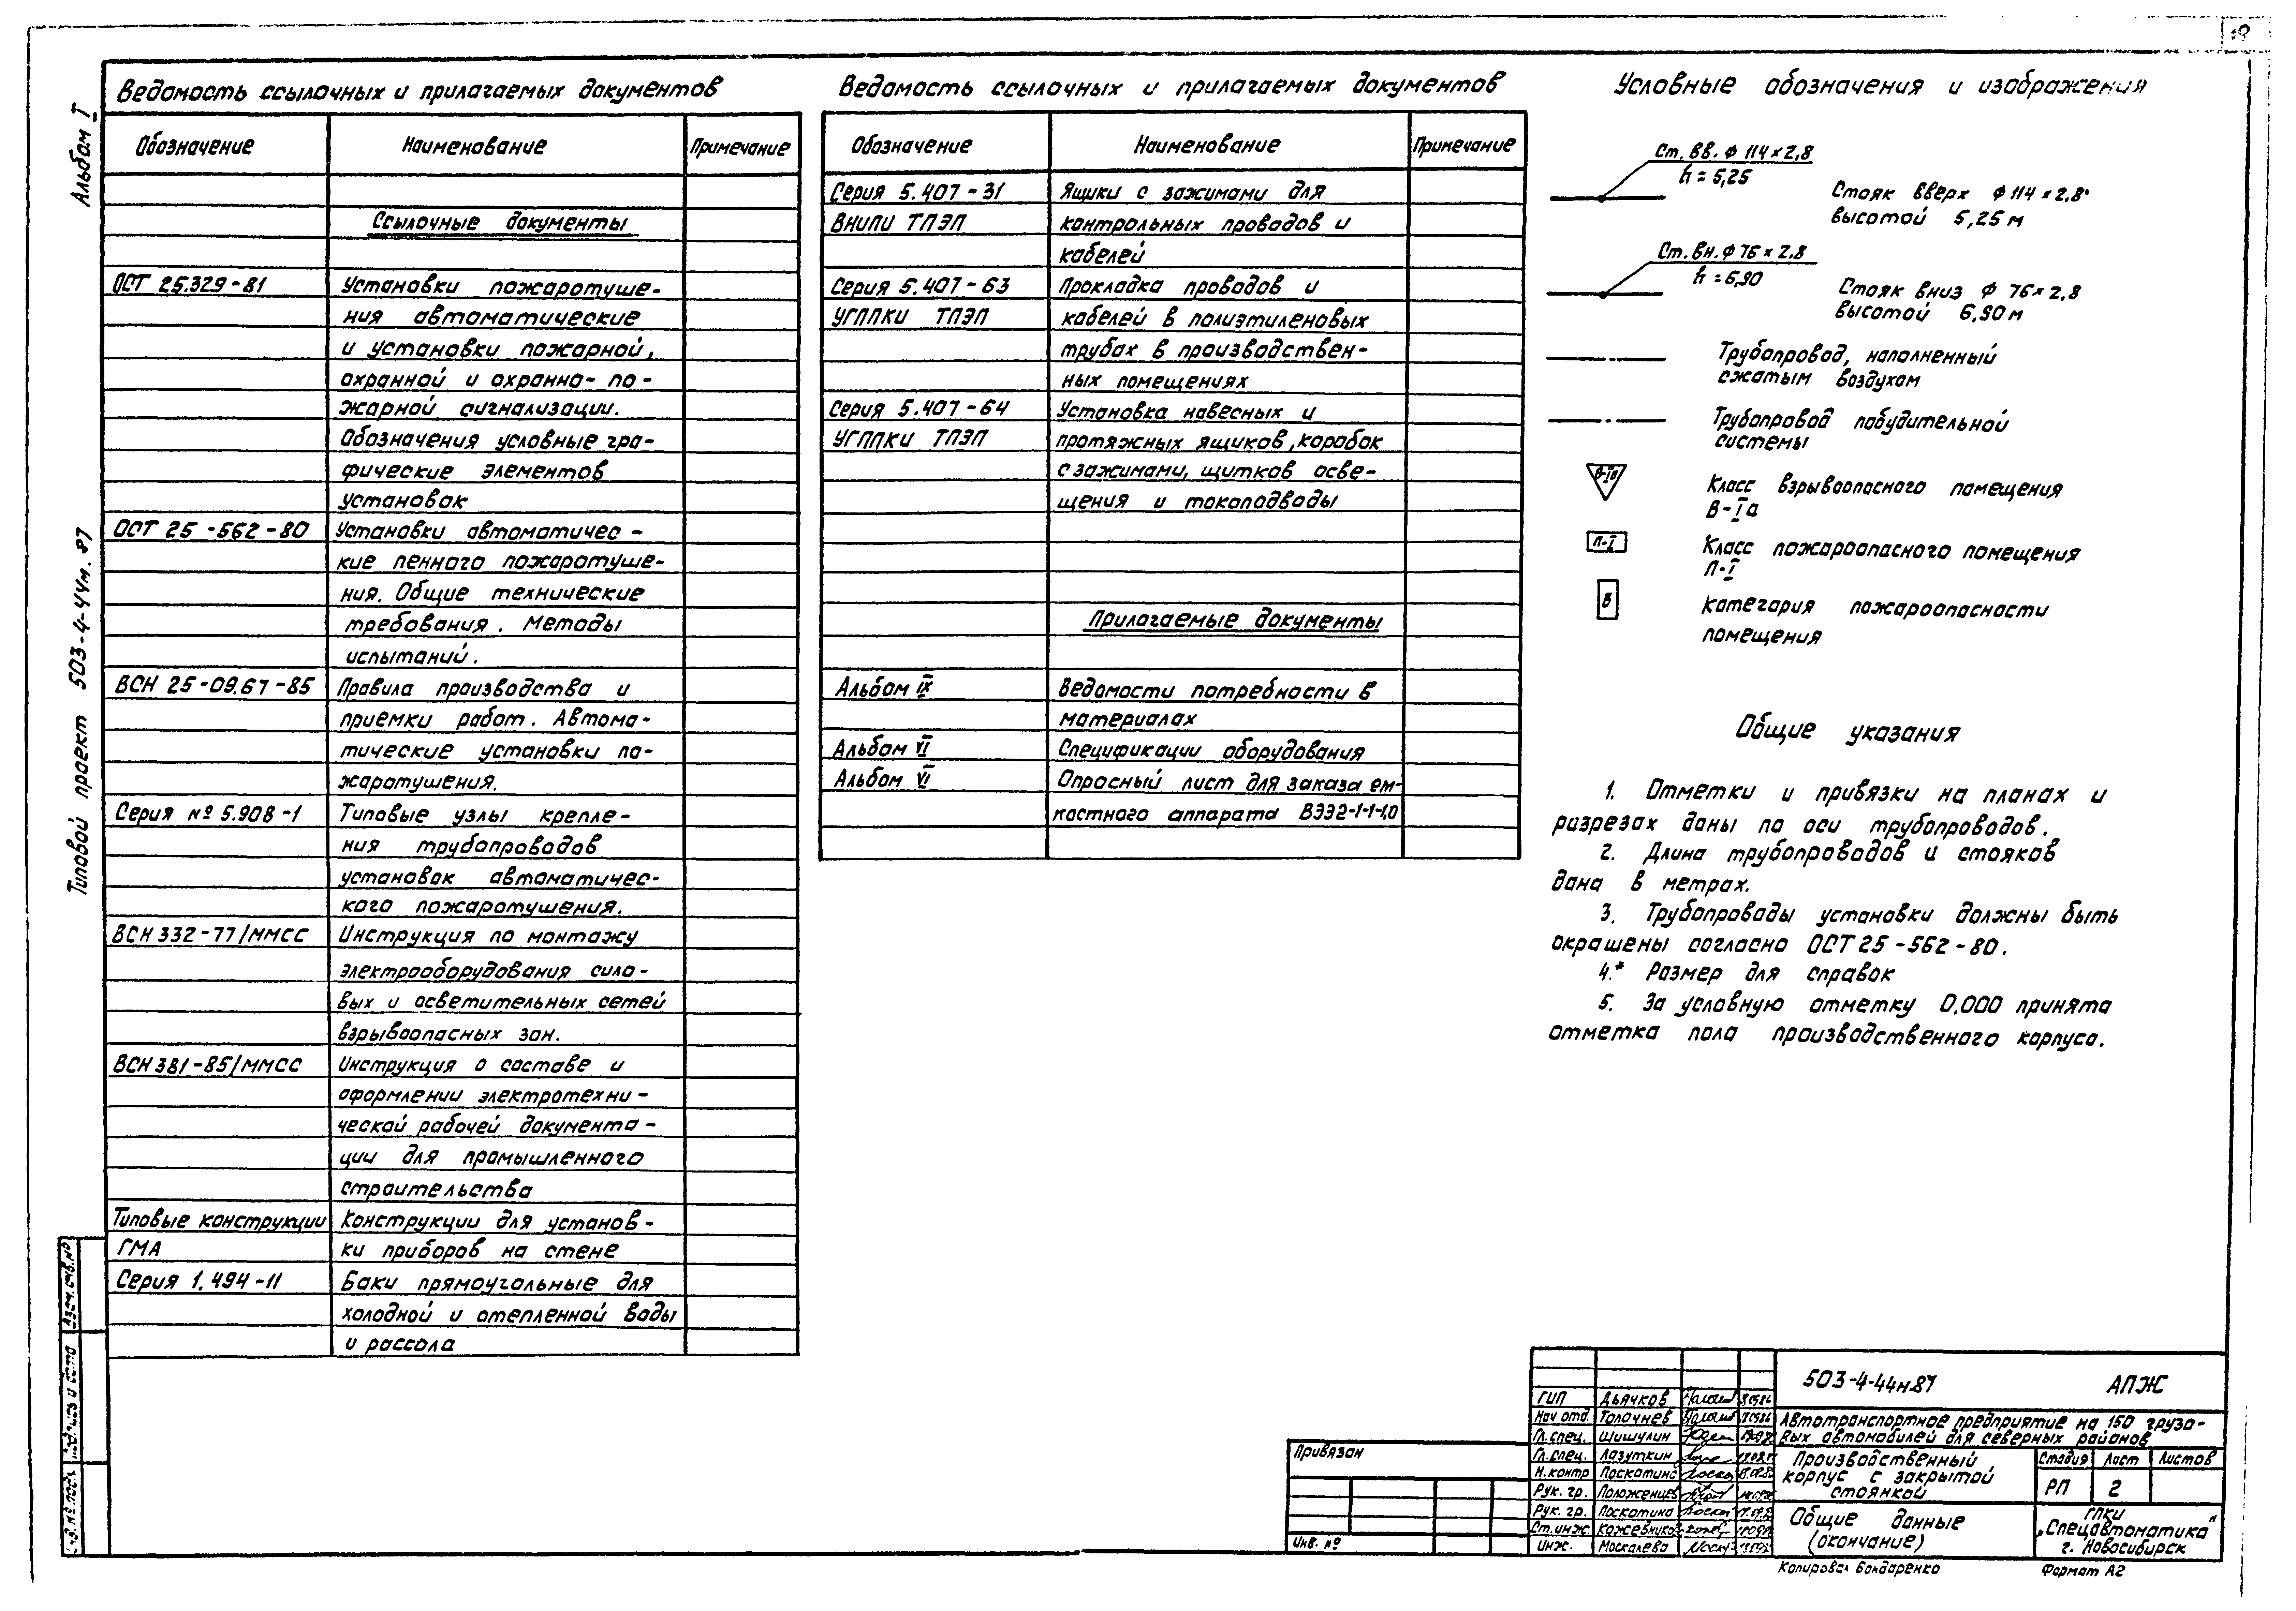 19
Альбом I
Типовой проект 503-4-44м.87
Ведомость ссылочных и прилагаемых документов
Обозначение Наименование Примечание
Ссылочные документы
ОСТ 25.329-81 Установки пожаротуше-
ния автоматические
и установки пожарной,
охранной и охранно-по-
жарной сигнализации.
Обозначения условные гра-
фические элементов
установок
ОСТ 25-562-80 Установки автоматичес-
кие пенного пожаротуше-
ния. Общие технические
требования. Методы
испытаний.
ВСН 25-09.67-85 Правила производства и
приемки работ. Автома-
тические установки по-
жаротушения.
Серия № 5.908-1 Типовые узлы крепле-
ния трубопроводов
установок автоматичес-
кого пожаротушения.
ВСН 332-77/ММСС Инструкция по монтажу
электрооборудования сило-
вых и осветительных сетей
взрывоопасных зон.
ВСН 381-85/ММСС Инструкция о составе и
оформлении электротехни-
ческой рабочей документа-
ции для промышленного
строительства
Типовые конструкции Конструкции для установ-
ГМА ки приборов на стене
Серия 1.494-11 Баки прямоугольные для
холодной и отепленной воды
и рассола
Ведомость ссылочных и прилагаемых документов
Обозначение Наименование Примечание
Серия 5.407-31 Ящики с зажимами для
ВНИПИ ТПЭП контрольных проводов и
кабелей
Серия 5.407-63 Прокладка проводов и
УГППКИ ТПЭП кабелей в полиэтиленовых
трубах в производствен-
ных помещениях
Серия 5.407-64 Установка навесных и
УГППКИ ТПЭП протяжных ящиков, коробок
с зажимами, щитков осве-
щения и токоподводы
Прилагаемые документы
Альбом IX Ведомости потребности в
материалах
Альбом VI Спецификации оборудования
Альбом VI Опросный лист для заказа ем-
костного аппарата ВЭЭ2-1-1-1,0
Условные обозначения и изображения
Ст. вв. ф 114×2,8
h=5,25
Стояк вверх ф 114×2,8
высотой 5,25 м
Ст. вн. ф 76×2,8
h=6,90
Стояк вниз ф 76×2,8
высотой 6,90 м
Трубопровод, наполненный
сжатым воздухом
Трубопровод побудительной
системы
В-Iа Класс взрывоопасного помещения
В-Iа
П-I Класс пожароопасного помещения
П-I
В Категория пожароопасности
помещения
Общие указания
1. Отметки и привязки на планах и
разрезах даны по оси трубопроводов.
2. Длина трубопроводов и стояков
дана в метрах.
3. Трубопроводы установки должны быть
окрашены согласно ОСТ 25-562-80.
4.* Размер для справок
5. За условную отметку 0,000 принята
отметка пола производственного корпуса.
Взам. инв. №
Подпись и дата
Инв. № подл.
Привязан
Инв. №
503-4-44м.87 АПЖ
ГИП Дьячков
Нач отд. Толочнев
Гл. спец. Шишулин
Гл. спец. Лазуткин
Н. контр Поскотина
Рук. гр. Положенцев
Рук. гр. Поскотина
Ст. инж. Кожевников
Инж. Москалева
Автотранспортное предприятие на 150 грузо-
вых автомобилей для северных районов
Производственный
корпус с закрытой
стоянкой
Стадия Лист Листов
РП 2
Общие данные
(окончание)
ГПКИ
„Спецавтоматика"
г. Новосибирск
Копировал Бондаренко Формат А2